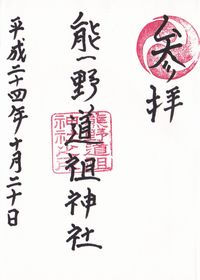 奉拝
熊野道祖神社
熊野道祖神社之印
平成二十四年十月二十日